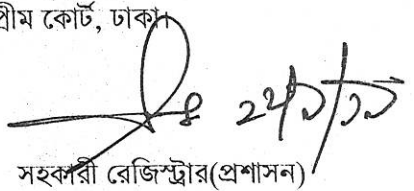 প্রীম কোর্ট, ঢাকা।
সহকারী রেজিস্ট্রার(প্রশাসন)